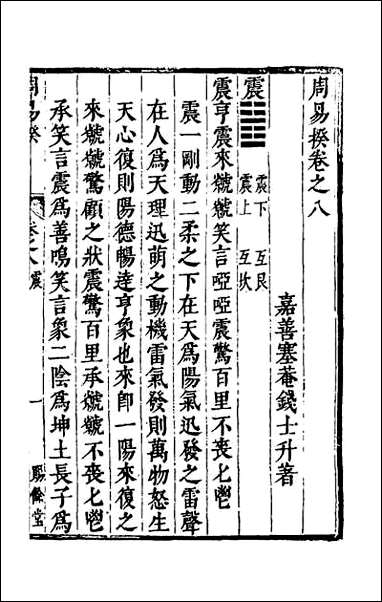 周易揆卷之八
嘉善塞菴錢士升著
震 震下 互艮
震上 互坎
震亨震來虩虩笑言啞啞震驚百里不喪匕鬯
震一剛動二柔之下在天爲陽氣迅發之雷聲
在人爲天理迅萌之動機雷氣發則萬物怒生
天心復則陽德暢達亨象也來卽一陽來復之
來虩虩驚顧之狀震驚百里承虩虩不喪匕鬯
承笑言震爲善鳴笑言象二陰爲坤土長子爲
周易揆
卷之八 震
一
賜餘堂